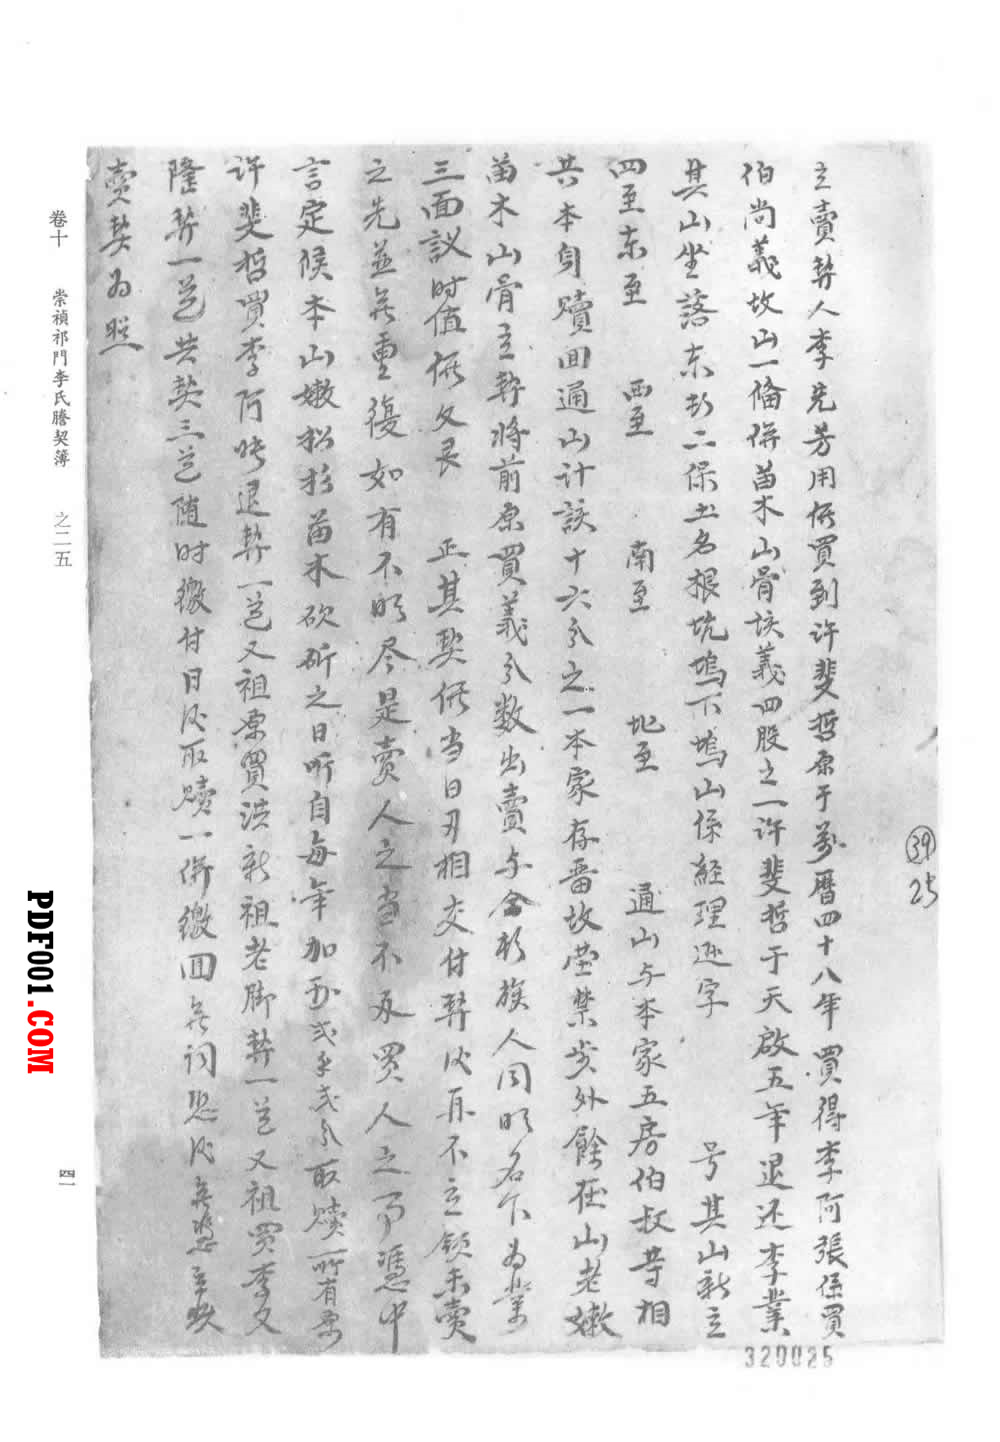 立賣契人李先芳用價買到許斐哲原于萬曆四十八年買得李阿張係買
伯尚義故山一備併苗木山骨該義四股之一許斐哲于天啟五年退还李業
其山坐落东都二保土名根坑塢下塢山係經理遜字 号其山新立
四至东至 西至 南至 北至 通山与本家五房伯叔等相
共本身贖回通山計該十六分之一本家存畱故塋禁步外餘在山老嫩
苗木山骨立契將前原買義分數出賣与合都族人同 名下為業
三面議时值價文艮 正其契價当日刃相交付契後再不立領未賣
之先並無重復如有不明尽是賣人之当不及買人之事憑中
言定候本山嫩松杉苗木砍斫之日听自每年加 取贖所有原
許斐哲買李阿 退契一道又祖原買洪新祖老脚契一道又祖買李文
隆契一道共契三道随时繳付日後取贖一併繳回無詞恐後無憑立此
賣契为照
卷十 崇禎祁門李氏謄契簿 之二五
四一
39
25
320025
PDF001.COM